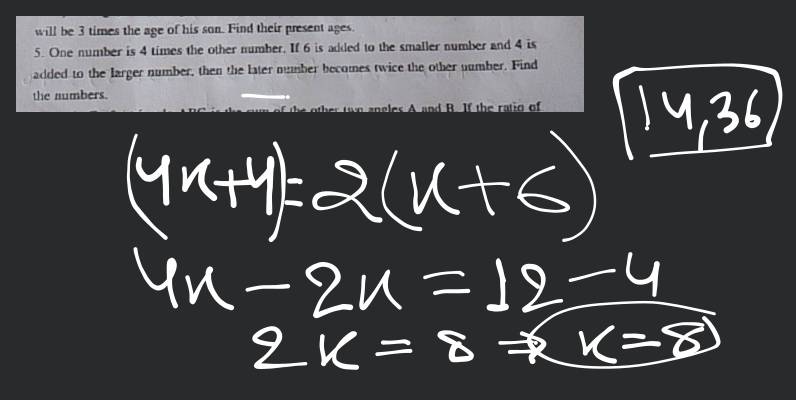 will be 3 times the age of his son. Find their present ages.
5. One number is 4 times the other number. If 6 is added to the smaller number and 4 is
added to the larger number, then the later number becomes twice the other number. Find
the numbers.
sum of the other two angles A and B. If the ratio of
14,36
(4x+4)=2(x+6)
4x-2x=12-4
2x=8⇒x=8